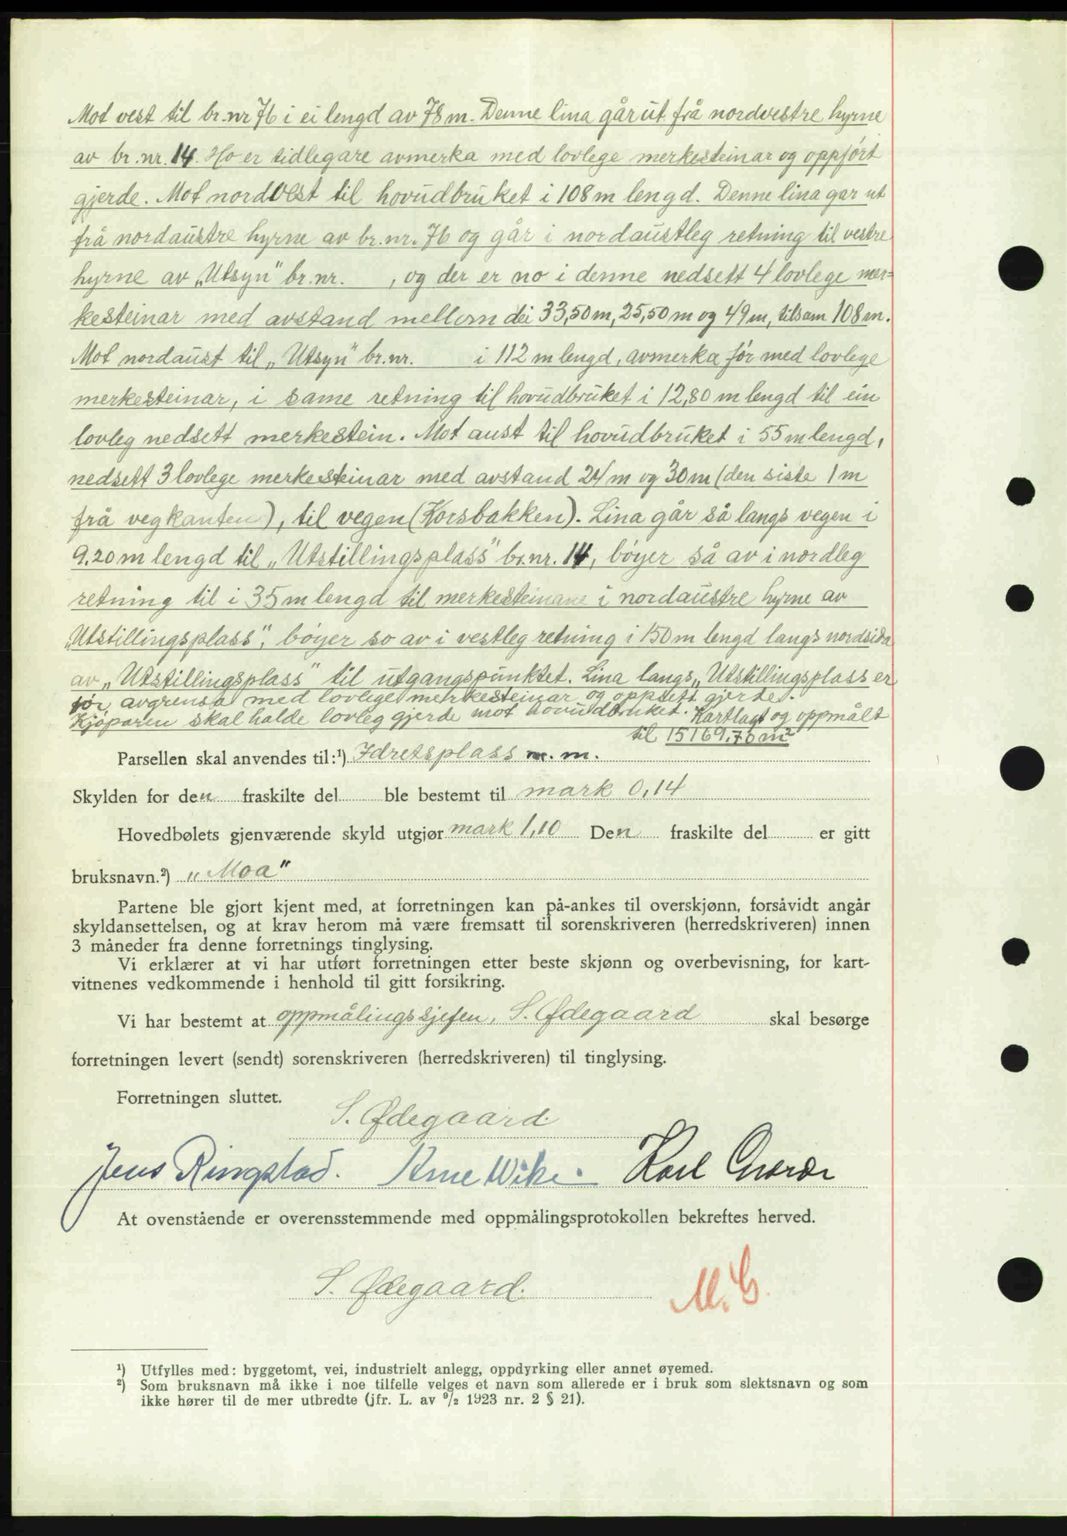 Mot vest til br.nr 76 i ei lengd av 78 m. Denne lina går ut frå nordvestre hyrne
av br.nr. 14. Ho er tidlegare avmerka med lovlege merkesteinar og oppført
gjerde. Mot nordvest til hovudbruket i 108 m lengd. Denne lina gar ut
frå nordaustre hyrne av br.nr. 76 og går i nordaustleg retning til vestre
hyrne av „Utsyn" br.nr. , og der er no i denne nedsett 4 lovlege mer=
kesteinar med avstand mellom dei 33,50 m, 25,50 m og 49 m, tilsam 108 m.
Mot nordaust til „Utsyn" br.nr. i 112 m lengd, avmerka før med lovlege
merkesteinar, i same retning til hovudbruket i 12,80 m lengd til ein
lovleg nedsett merkestein. Mot aust til hovudbruket i 55 m lengd,
nedsett 3 lovlege merkesteinar med avstand 24 m og 30 m (den siste 1 m
frå vegkanten), til vegen (Korsbakken). Lina går så langs vegen i
9,20 m lengd til „Utstillingsplass" br.nr. 14, bøyer så av i nordleg
retning til i 35 m lengd til merkesteinane i nordaustre hyrne av
„Utstillingsplass", bøyer so av i vestleg retning i 150 m lengd langs nordsida
av „Utstillingsplass" til utgangspunktet. Lina langs „Utstillingsplass er
før avgrensa med lovlege merkesteinar og oppsett gjerde.
Kjøparen skal halde lovleg gjerde mot hovudbruket. Kartlagt og oppmålt
til 15169,76 m²
Parsellen skal anvendes til:¹) Idretsplass m. m.
Skylden for den fraskilte del ble bestemt til mark 0,14
Hovedbølets gjenværende skyld utgjør mark 1,10 Den fraskilte del er gitt
bruksnavn.²) „Moa"
Partene ble gjort kjent med, at forretningen kan på-ankes til overskjønn, forsåvidt angår
skyldansettelsen, og at krav herom må være fremsatt til sorenskriveren (herredskriveren) innen
3 måneder fra denne forretnings tinglysing.
Vi erklærer at vi har utført forretningen etter beste skjønn og overbevisning, for kart-
vitnenes vedkommende i henhold til gitt forsikring.
Vi har bestemt at oppmålingssjefen, S. Ødegaard skal besørge
forretningen levert (sendt) sorenskriveren (herredskriveren) til tinglysing.
Forretningen sluttet.
S. Ødegaard.
Jens Ringstad. Arne Wike. Karl
At ovenstående er overensstemmende med oppmålingsprotokollen bekreftes herved.
S. Ødegaard.
M. G.
¹) Utfylles med: byggetomt, vei, industrielt anlegg, oppdyrking eller annet øyemed.
²) Som bruksnavn må ikke i noe tilfelle velges et navn som allerede er i bruk som slektsnavn og som
ikke hører til de mer utbredte (jfr. L. av ⁹/₂ 1923 nr. 2 § 21).